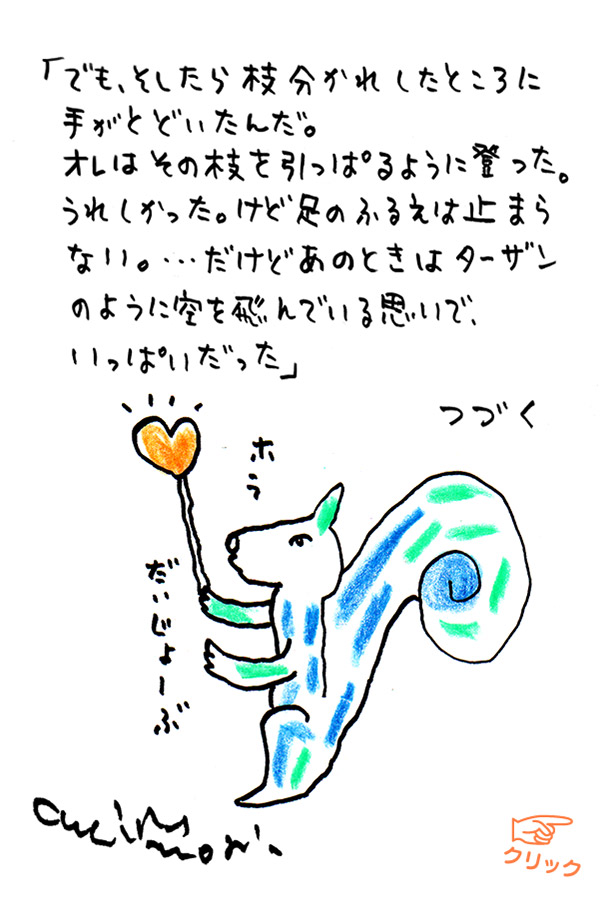 「でも、そしたら枝分かれしたところに
手がとどいたんだ。
オレはその枝を引っぱるように登った。
うれしかった。けど足のふるえは止まら
ない。…だけどあのときはターザン
のように空を飛んでいる思いで、
いっぱいだった」
つづく
ホラ
だいじょーぶ
クリック